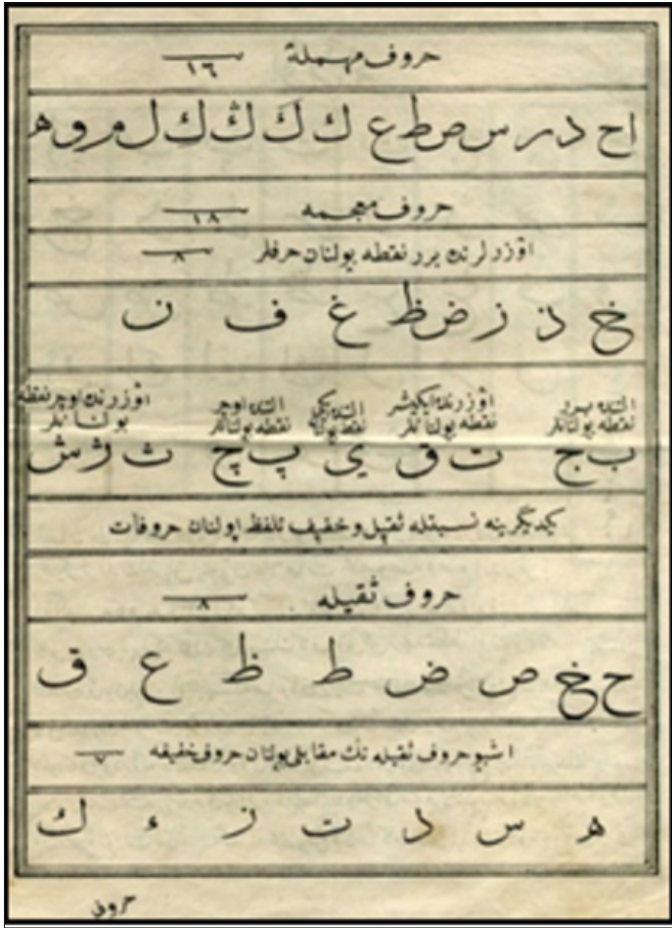 حروف مهملة ١٦
ا ح د ر س ص ط ع ك ك ڭ ك ل م و ه
حروف معجمه ١٨
اوزرلرنده برر نقطه بولنان حرفلر ٨
خ ذ ز ض ظ غ ف ن
التنده برر نقطه بولنانلر اوزرنده ایکیشر نقطه بولنانلر التنده ایکی نقطه بولنان التنده اوچر نقطه بولنانلر اوزرنده اوچر نقطه بولنانلر
ب ج ت ق ی پ چ ث ژ ش
یکدیگرینه نسبتله ثقیل و خفیف تلفظ اولنان حروفات
حروف ثقیله ٨
ح خ ص ض ط ظ ع ق
اشبو حروف ثقیله نك مقابلی بولنان حروف خفیفه ٧
ه س د ت ز ء ك